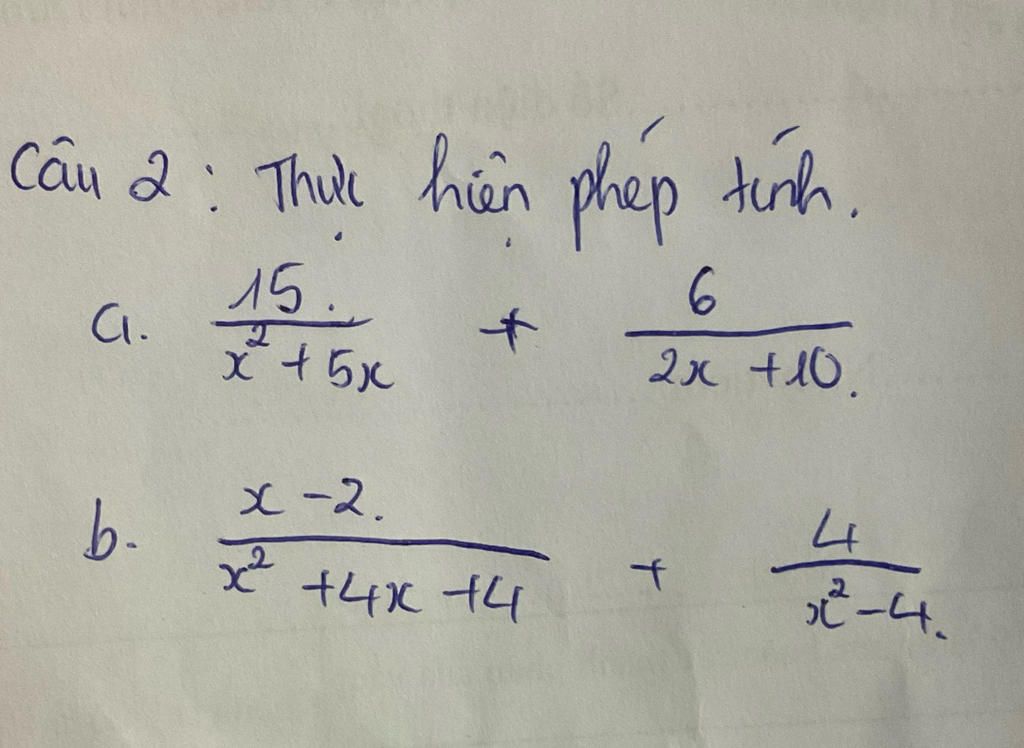 Câu 2 : Thực hiện phép tính.
a. 15. / x² + 5x + 6 / 2x + 10.
b. x - 2. / x² + 4x + 4 + 4 / x² - 4.